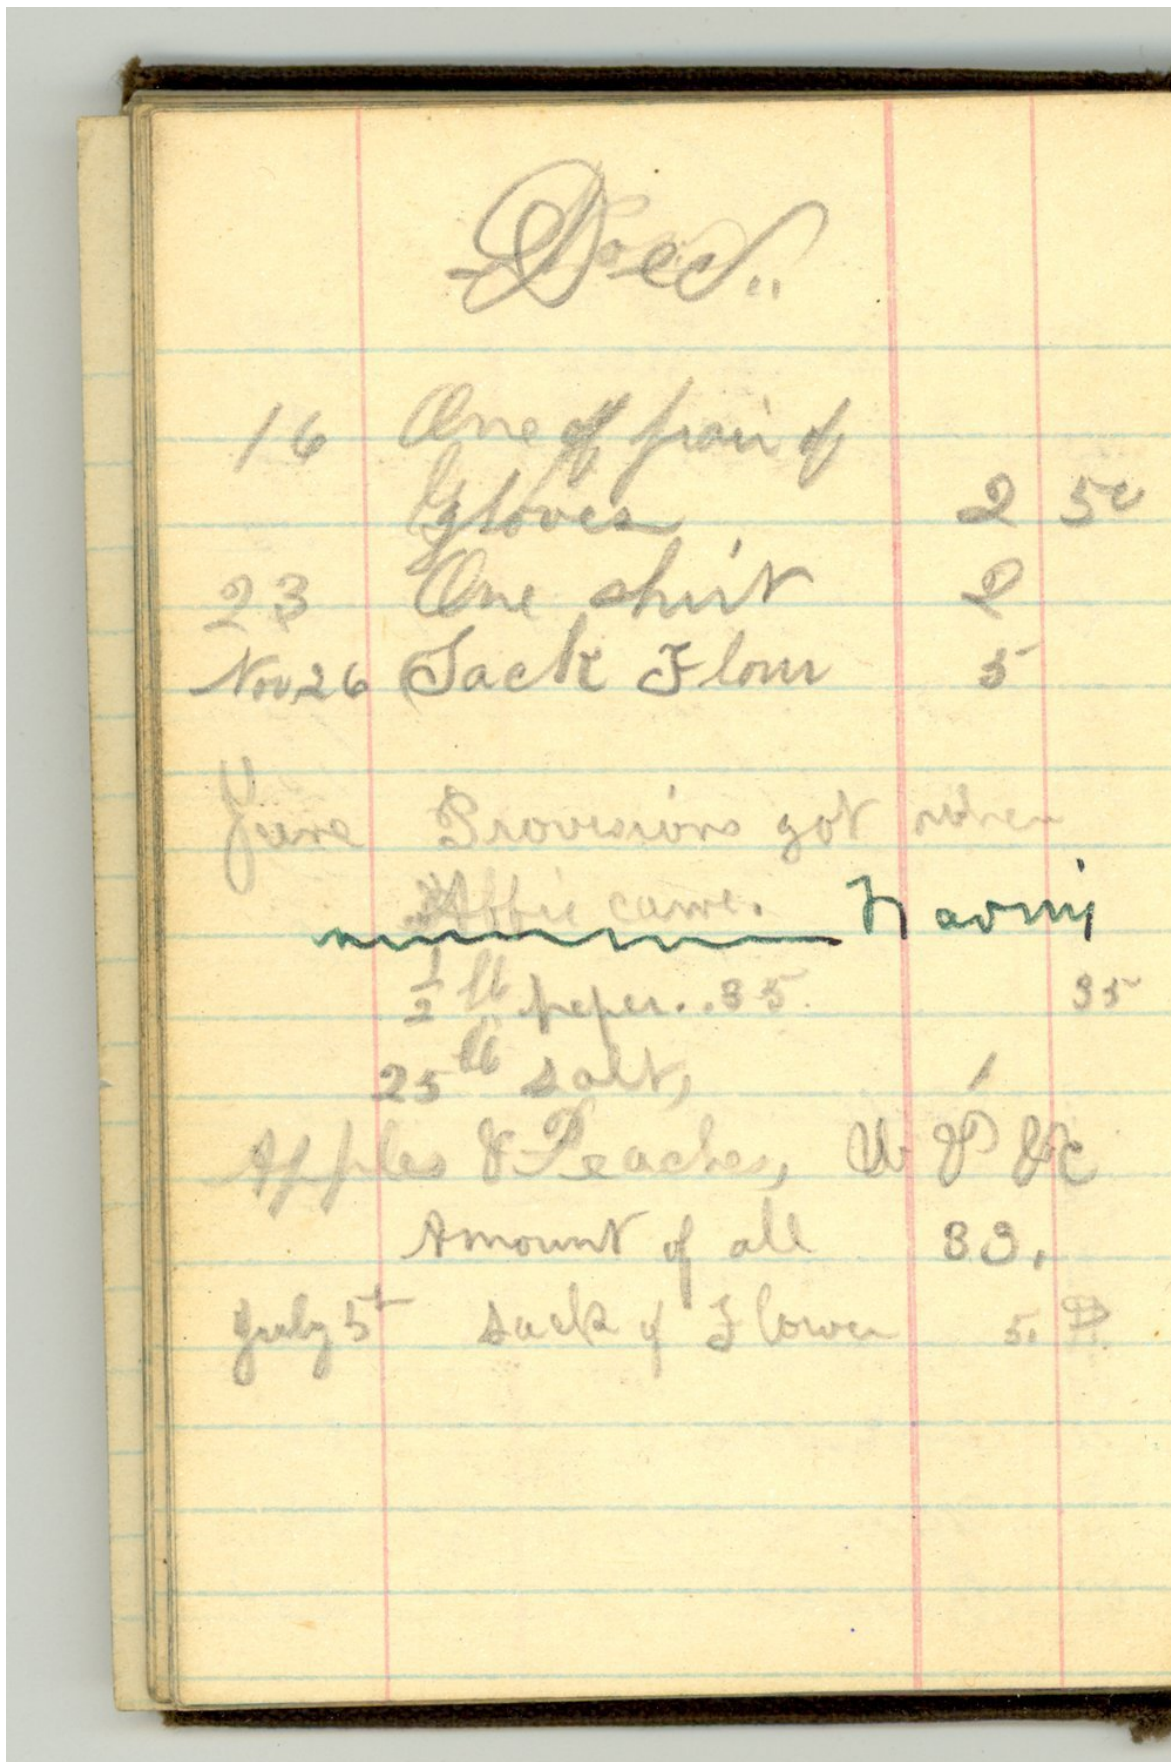 Dec.
16 One of pair of
Gloves 2 50
23 One shirt 2
Nov 26 Sack Flour 5
June Provisions got when
Abbie came. Naomi
1/2 lb peper..35 35
25 lb salt, 1
Apples & Peaches, &c
Amount of all 33.
July 5t sack of Flower 5.